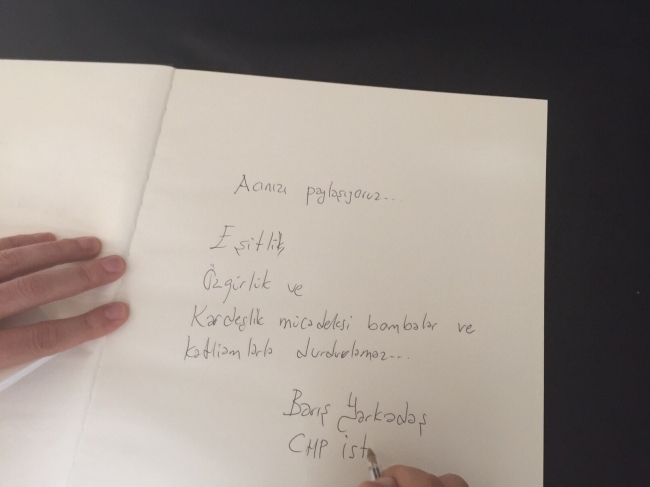 Acınızı paylaşıyoruz...
Eşitlik,
Özgürlük ve
Kardeşlik mücadelesi bombalar ve
katliamlarla durdurulamaz...
Barış Yarkadaş
CHP ist